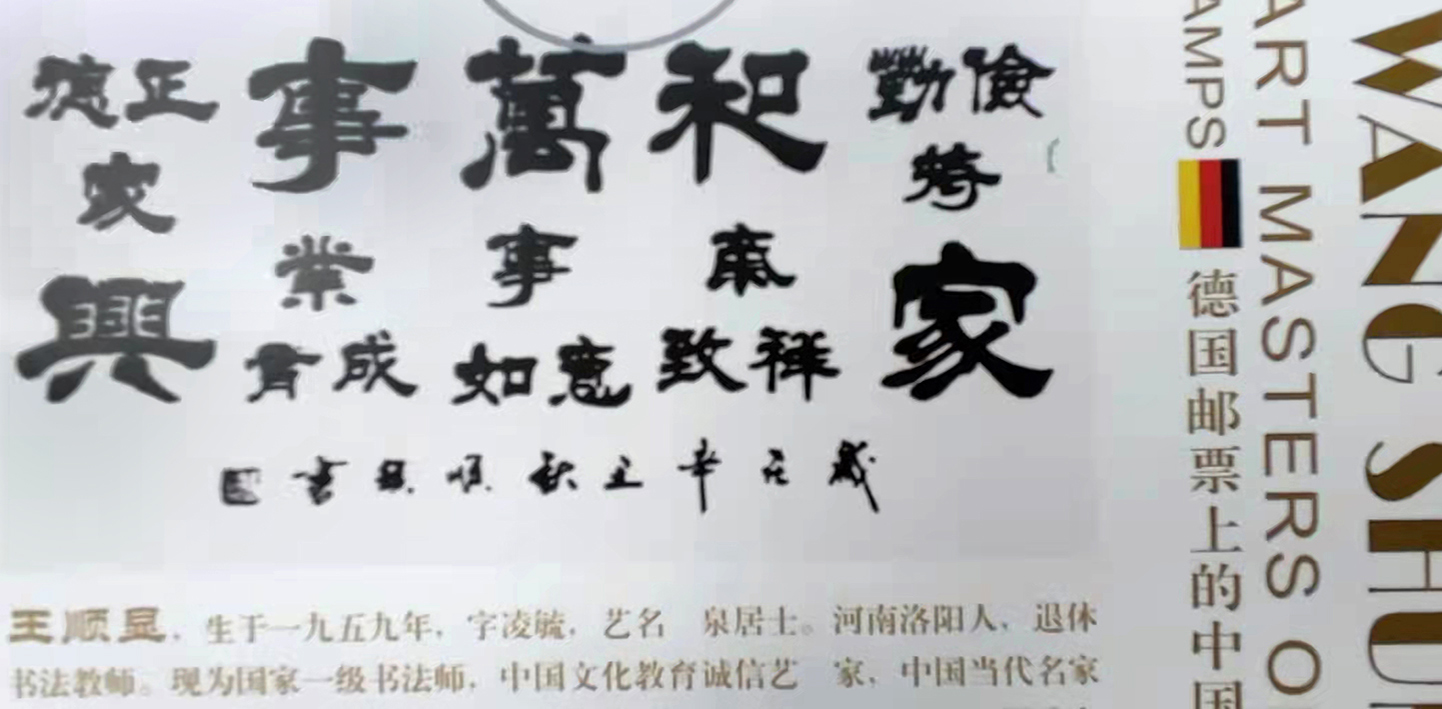 勤儉持家
和氣致祥
萬事如意
事業有成
德正家興
歲在辛丑秋順顯書
王顺显，生于一九五九年，字凌毓，艺名 泉居士。河南洛阳人，退休
书法教师。现为国家一级书法师，中国文化教育诚信艺 家，中国当代名家
WANG SHUN
ART MASTERS O
AMPS 德国邮票上的中国